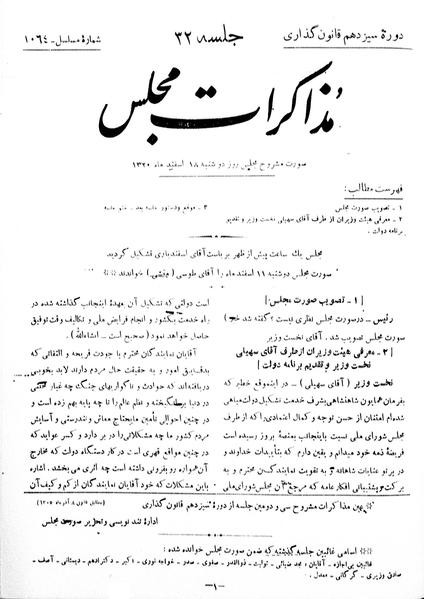 دورهٔ سیزدهم قانون گذاری
جلسه ۳۲
شمارهٔ مسلسل - ۱۰۶۴
مذاکرات مجلس
صورت مشروح مجلس روز دوشنبه ۱۸ اسفند ماه ۱۳۲۰
فهرست مطالب:
۱ - تصویب صورت مجلس
۲ - معرفی هیئت وزیران از طرف آقای سهیلی نخست وزیر و تقدیم
برنامه دولت.
۳ - موقع و دستور جلسه بعد - ختم جلسه
مجلس یک ساعت پیش از ظهر بریاست آقای اسفندیاری تشکیل گردید
صورت مجلس دوشنبه ۱۱ اسفند ماه را آقای طوسی (منشی) خواندند
[ ۱ - تصویب صورت مجلس ]
رئیس - در صورت مجلس نظری نیست؟ گفته شد خیر)
صورت مجلس تصویب شد. آقای نخست وزیر
[ ۲ - معرفی هیئت وزیران از طرف آقای سهیلی
نخست وزیر و تقدیم برنامه دولت ]
نخست وزیر (آقای سهیلی) - در اینموقع خطیر که
بفرمان همایون شاهنشاهی بشرف خدمت تشکیل دولت مباهی
شده‌ام امتنان از حسن توجه و کمال اعتمادی را که از طرف
مجلس شورای ملی نسبت باینجانب بمنصهٔ بروز رسیده است
فریضهٔ ذمه خود میدانم و یقین دارم که بتأییدات خداوند و
در پرتو عنایات شاهانه و به تقویت نمایندگان محترم و به
برکت پشتیبانی افکار عامه که مرجع آن مجلس شورای ملی
است دولتی که تشکیل آن بعهدهٔ اینجانب گذاشته شده در
راه خدمت بکشور و انجام فرایض ملی و تکالیف وقت توفیق
حاصل خواهد نمود (صحیح است - انشاءالله).
آقایان نمایندگان محترم با جودت قریحه و التفاتی که
بدقایق امور و به حقیقت حال مردم دارند لابد بخوبی
دریافته‌اند که حوادث و ناگواریهای جنگ چه غبار
در دنیا برانگیخته و نظم عالم را تا چه پایه بهم زده است و
در چنین احوالی تأمین مایحتاج معاش و تندرستی و آسایش
مردم کشور ما چه مشکلاتی را در بر دارد و کسر عواید که
در چنین مواقع قهری است در کار دستگاه دولت که مخارج
آن همواره رو بفزونی داشته است چه اثری می‌بخشد. اشاره
باین مشکلات که خود آقایان نمایندگان از کم و کیف آن
عین مذاکرات مشروح سی و دومین جلسه از دورهٔ سیزدهم قانون گذاری
(مطابق قانون ۸ آذر ماه ۱۳۰۵)
ادارهٔ تند نویسی و تحریر صورت مجلس
اسامی غائبین جلسه گذشته که ضمن صورت مجلس خوانده شده:
غائبین بی‌اجازه - آقایان: مجد ضیائی - تولیت - ذوالقدر - صفوی - صدر - خواجه نوری - اکبر - دکتر ادهم - دبستانی - آصف -
صادق وزیری - گرگانی - معدل.
-۱-